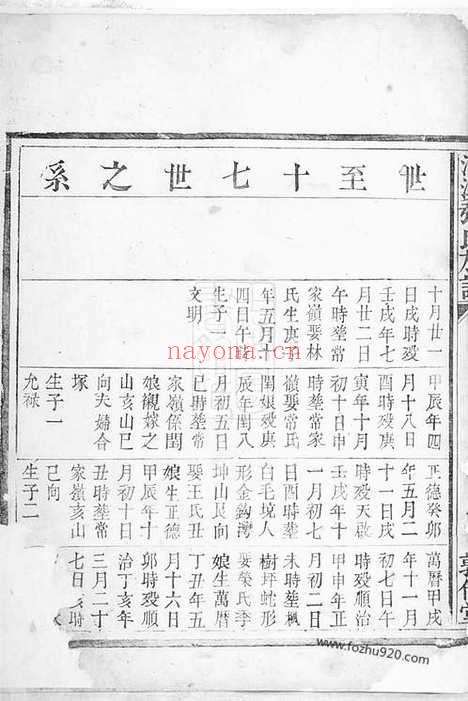 世至十七世之系
十月廿一
日戌時殁
壬戌年七
月廿二日
午時塟常
家嶺娶林
氏生庚子
年五月十
四日午時
生子一
文明
甲辰年四
月十八日
酉時殁庚
寅年十月
初十日申
時塟常家
嶺娶常氏
閏娘殁庚
辰年閏八
月初五日
巳時塟常
家嶺係閏
娘親嫁之
山亥山巳
向夫婦合
塚
生子一
允祿
正德癸卯
年五月二
十一日戌
時殁天啟
壬戌年十
一月初七
日酉時塟
白毛境人
形金鈎灣
坤山艮向
娶王氏丑
娘生正德
甲辰年十
月初十日
丑時塟常
家嶺亥山
巳向
生子二
萬曆甲戌
年十一月
初七日午
時殁順治
甲申年正
月初二日
未時塟楓
樹坪蛇形
娶榮氏李
娘生萬曆
丁丑年五
月十六日
卯時殁順
治丁亥年
三月二十
七日亥時
nayona.cn
www.fozhu920.com